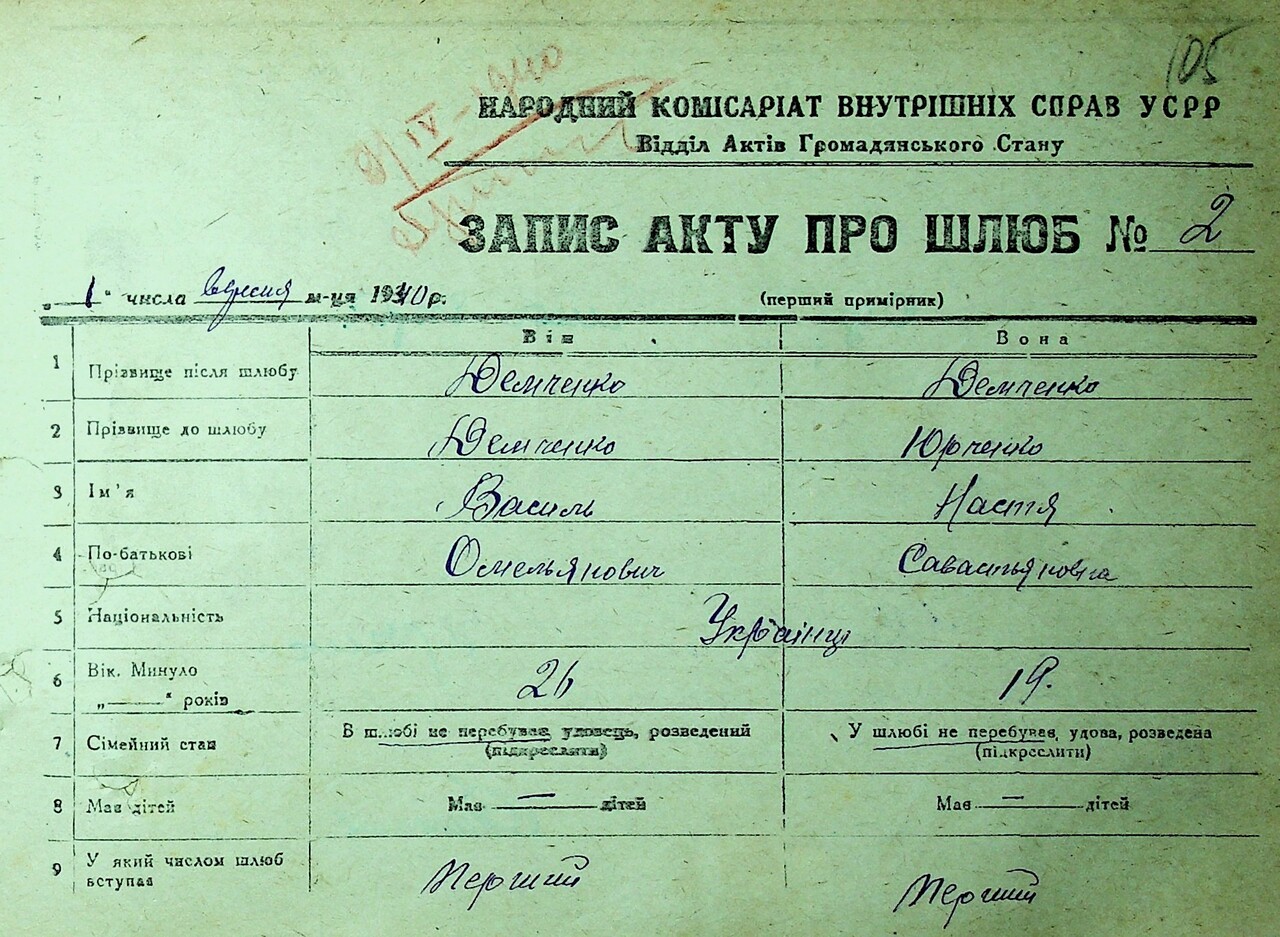 105
9/IV-1940
НАРОДНИЙ КОМІСАРІАТ ВНУТРІШНІХ СПРАВ УСРР
Відділ Актів Громадянського Стану
ЗАПИС АКТУ ПРО ШЛЮБ № 2
„1" числа вересня м-ця 1940 р. (перший примірник)
Він Вона
1 Прізвище після шлюбу Демченко Демченко
2 Прізвище до шлюбу Демченко Юрченко
3 Ім'я Василь Настя
4 По-батькові Омельянович Савастьяновна
5 Національність Українці
6 Вік. Минуло „——" років 26 19.
7 Сімейний стан В шлюбі не перебував, удовець, розведений (підкреслити) У шлюбі не перебував, удова, розведена (підкреслити)
8 Мав дітей Мав — дітей Мав — дітей
9 У який числом шлюб вступав Перший Перший